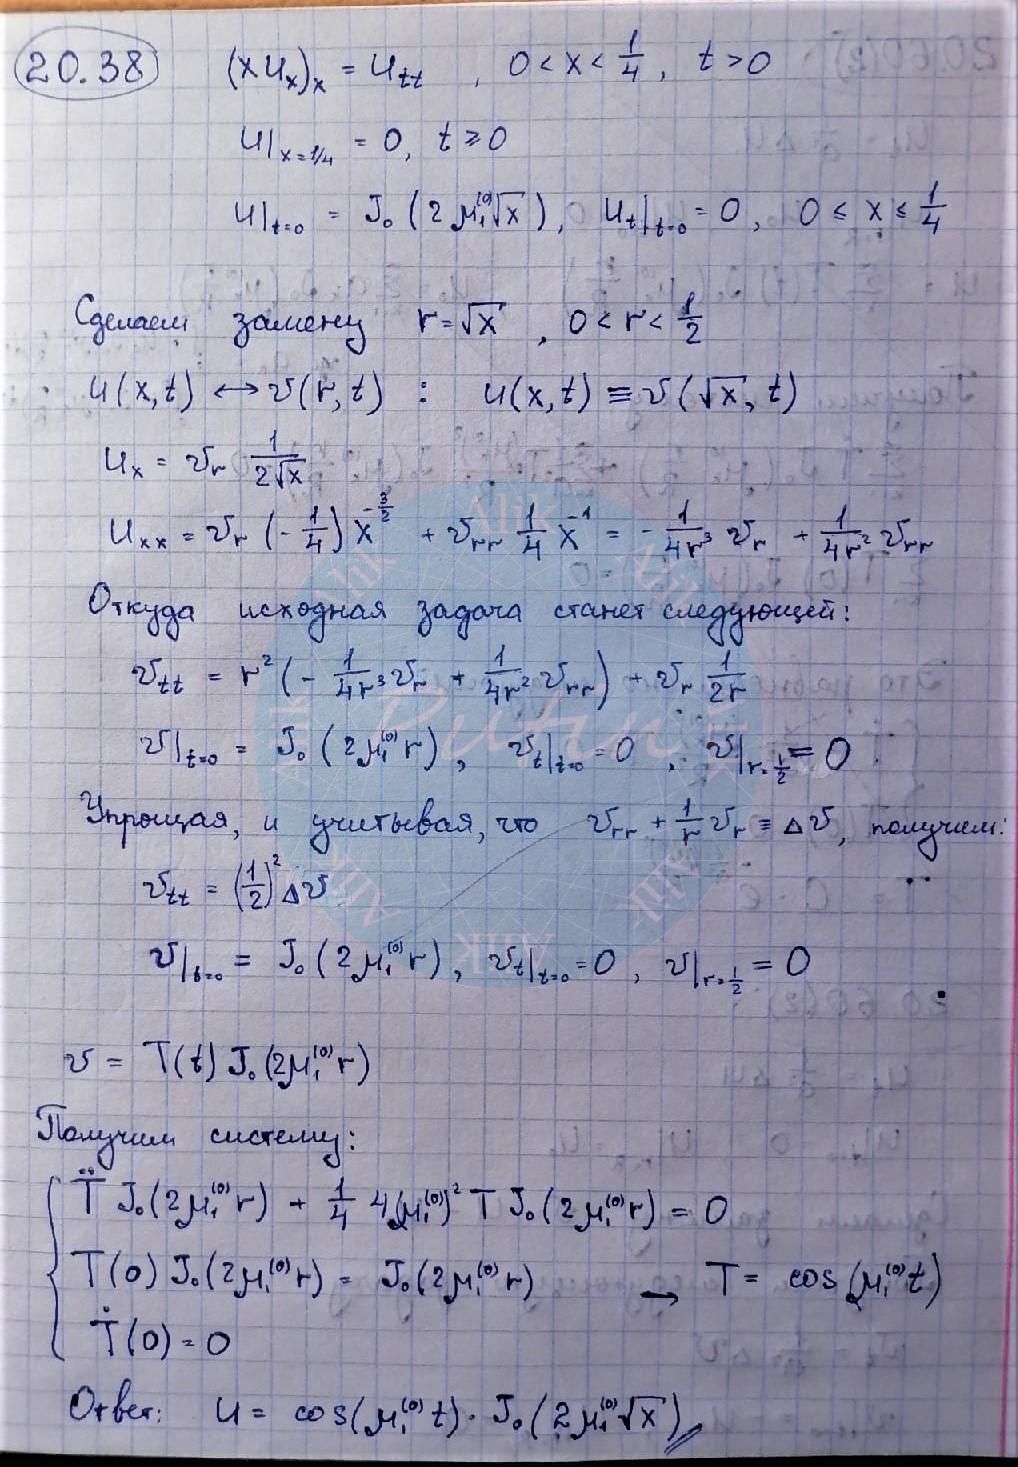 20.38 (x u_x)_x = u_tt , 0 < x < 1/4 , t > 0
u|_{x=1/4} = 0, t ≥ 0
u|_{t=0} = J₀(2μ₁⁽⁰⁾√x), u_t|_{t=0} = 0, 0 ≤ x ≤ 1/4
Сделаем замену r = √x , 0 < r < 1/2
u(x,t) ↔ v(r,t) : u(x,t) ≡ v(√x, t)
u_x = v_r 1/(2√x)
u_xx = v_r (-1/4) x^{-3/2} + v_rr 1/4 x^{-1} = - 1/(4r³) v_r + 1/(4r²) v_rr
Откуда исходная задача станет следующей:
v_tt = r² (- 1/(4r³) v_r + 1/(4r²) v_rr) + v_r 1/(2r)
v|_{t=0} = J₀(2μ₁⁽⁰⁾ r), v_t|_{t=0} = 0 , v|_{r=1/2} = 0
Упрощая, и учитывая, что v_rr + 1/r v_r ≡ Δv, получим:
v_tt = (1/2)² Δv
v|_{t=0} = J₀(2μ₁⁽⁰⁾ r), v_t|_{t=0} = 0 , v|_{r=1/2} = 0
v = T(t) J₀(2μ₁⁽⁰⁾ r)
Получим систему:
T̈ J₀(2μ₁⁽⁰⁾ r) + 1/4 4(μ₁⁽⁰⁾)² T J₀(2μ₁⁽⁰⁾ r) = 0
T(0) J₀(2μ₁⁽⁰⁾ r) = J₀(2μ₁⁽⁰⁾ r) → T = cos(μ₁⁽⁰⁾ t)
Ṫ(0) = 0
Ответ: u = cos(μ₁⁽⁰⁾ t) · J₀(2μ₁⁽⁰⁾ √x)